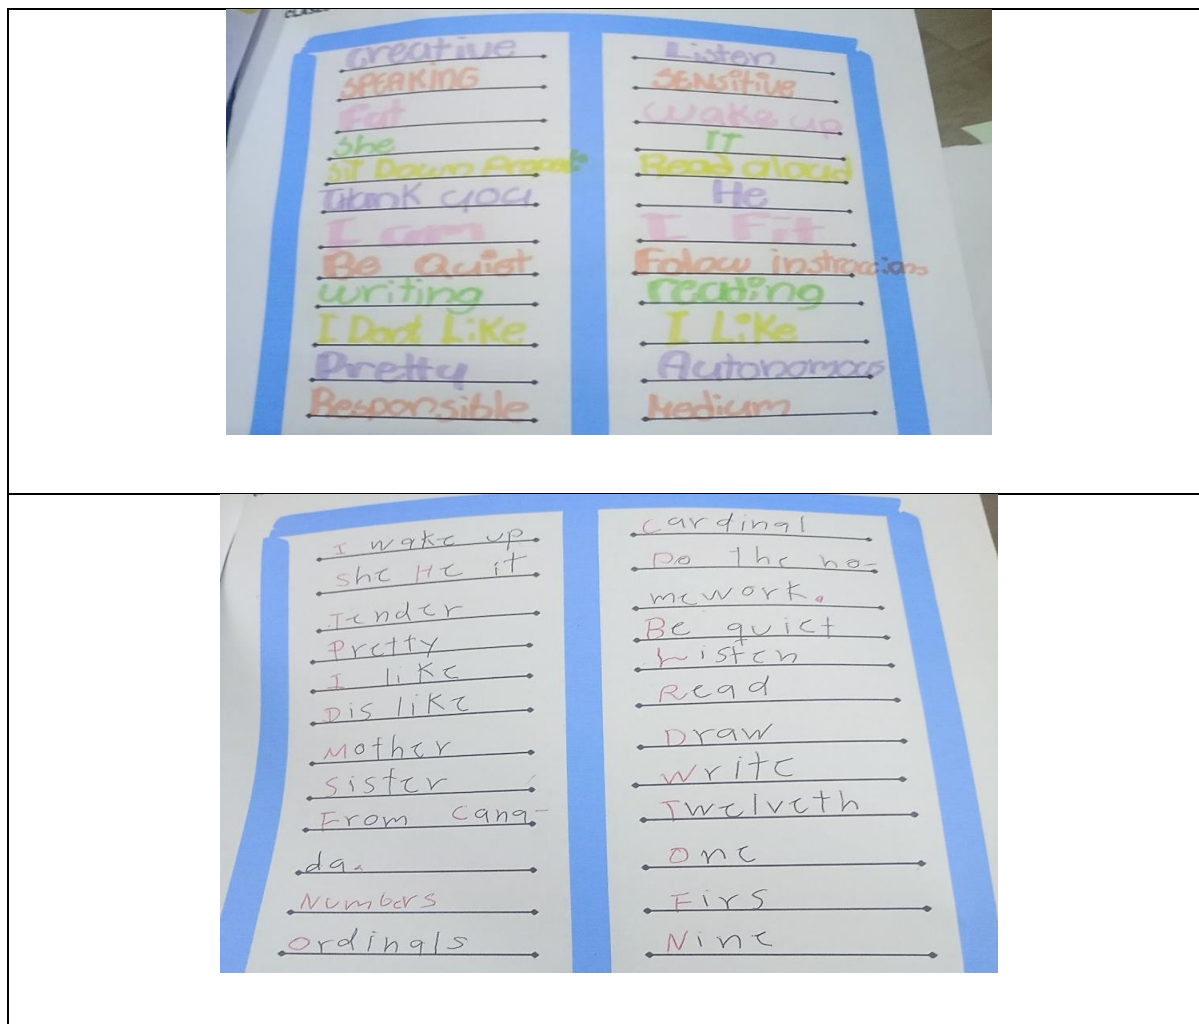 creative
SPEAKING
Fat
She
Sit Down
Thank you
I am
Be Quiet
writing
I Dont Like
Pretty
Responsible
Listen
SENSitive
wake up
IT
Read aloud
He
I Fit
Folow instruccions
reading
I Like
Autonomous
Medium
I wake up
She He it
Tender
Pretty
I like
Dis like
Mother
Sister
From Cana-
da.
Numbers
Ordinals
Cardinal
Do the ho-
mework.
Be quiet
Listen
Read
Draw
Write
Twelveth
One
Firs
Nine